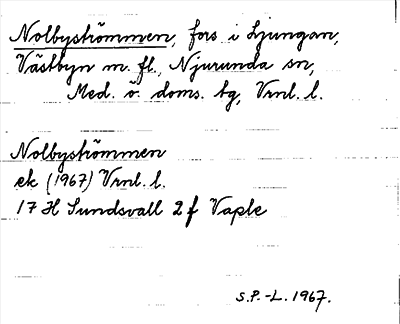 Nolbyströmmen, fors i Ljungan,
Västbyn m. fl., Njurunda sn,
Med. ö. doms. tg, Vrnl. l.
Nolbyströmmen
ek (1967) Vrnl. l.
17 H Sundsvall 2 f Vaple
S.P.-L. 1967.